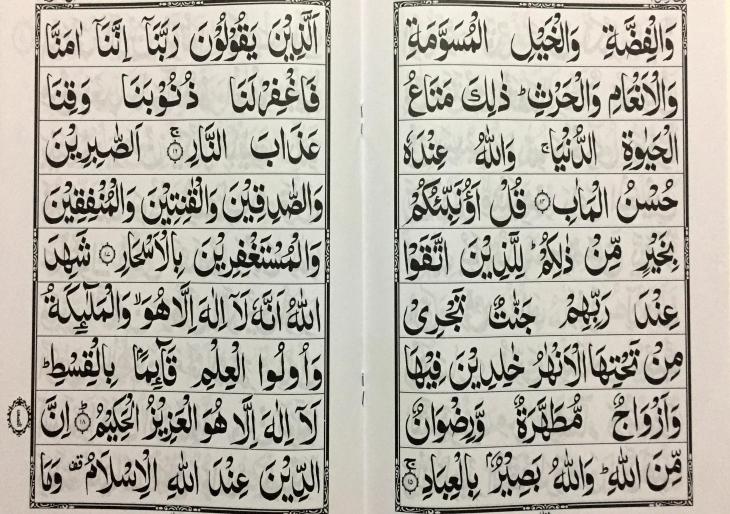 وَالْفِضَّةِ وَالْخَيْلِ الْمُسَوَّمَةِ
وَالْاَنْعَامِ وَالْحَرْثِ ؕ ذٰلِكَ مَتَاعُ
الْحَيٰوةِ الدُّنْيَا ۚ وَاللّٰهُ عِنْدَهٗ
حُسْنُ الْمَاٰبِ ﴿۱۴﴾ قُلْ اَؤُنَبِّئُكُمْ
بِخَيْرٍ مِّنْ ذٰلِكُمْ ؕ لِلَّذِيْنَ اتَّقَوْا
عِنْدَ رَبِّهِمْ جَنّٰتٌ تَجْرِيْ
مِنْ تَحْتِهَا الْاَنْهٰرُ خٰلِدِيْنَ فِيْهَا
وَاَزْوَاجٌ مُّطَهَّرَةٌ وَّرِضْوَانٌ
مِّنَ اللّٰهِ ؕ وَاللّٰهُ بَصِيْرٌۢ بِالْعِبَادِ ﴿۱۵﴾ ۚ
اَلَّذِيْنَ يَقُوْلُوْنَ رَبَّنَاۤ اِنَّنَاۤ اٰمَنَّا
فَاغْفِرْ لَنَا ذُنُوْبَنَا وَقِنَا
عَذَابَ النَّارِ ﴿۱۶﴾ ۚ اَلصّٰبِرِيْنَ
وَالصّٰدِقِيْنَ وَالْقٰنِتِيْنَ وَالْمُنْفِقِيْنَ
وَالْمُسْتَغْفِرِيْنَ بِالْاَسْحَارِ ﴿۱۷﴾ شَهِدَ
اللّٰهُ اَنَّهٗ لَاۤ اِلٰهَ اِلَّا هُوَ ۙ وَالْمَلٰٓئِكَةُ
وَاُولُوا الْعِلْمِ قَآئِمًۢا بِالْقِسْطِ ؕ
لَاۤ اِلٰهَ اِلَّا هُوَ الْعَزِيْزُ الْحَكِيْمُ ﴿۱۸﴾ ؕ اِنَّ
الدِّيْنَ عِنْدَ اللّٰهِ الْاِسْلَامُ ۟ وَمَا